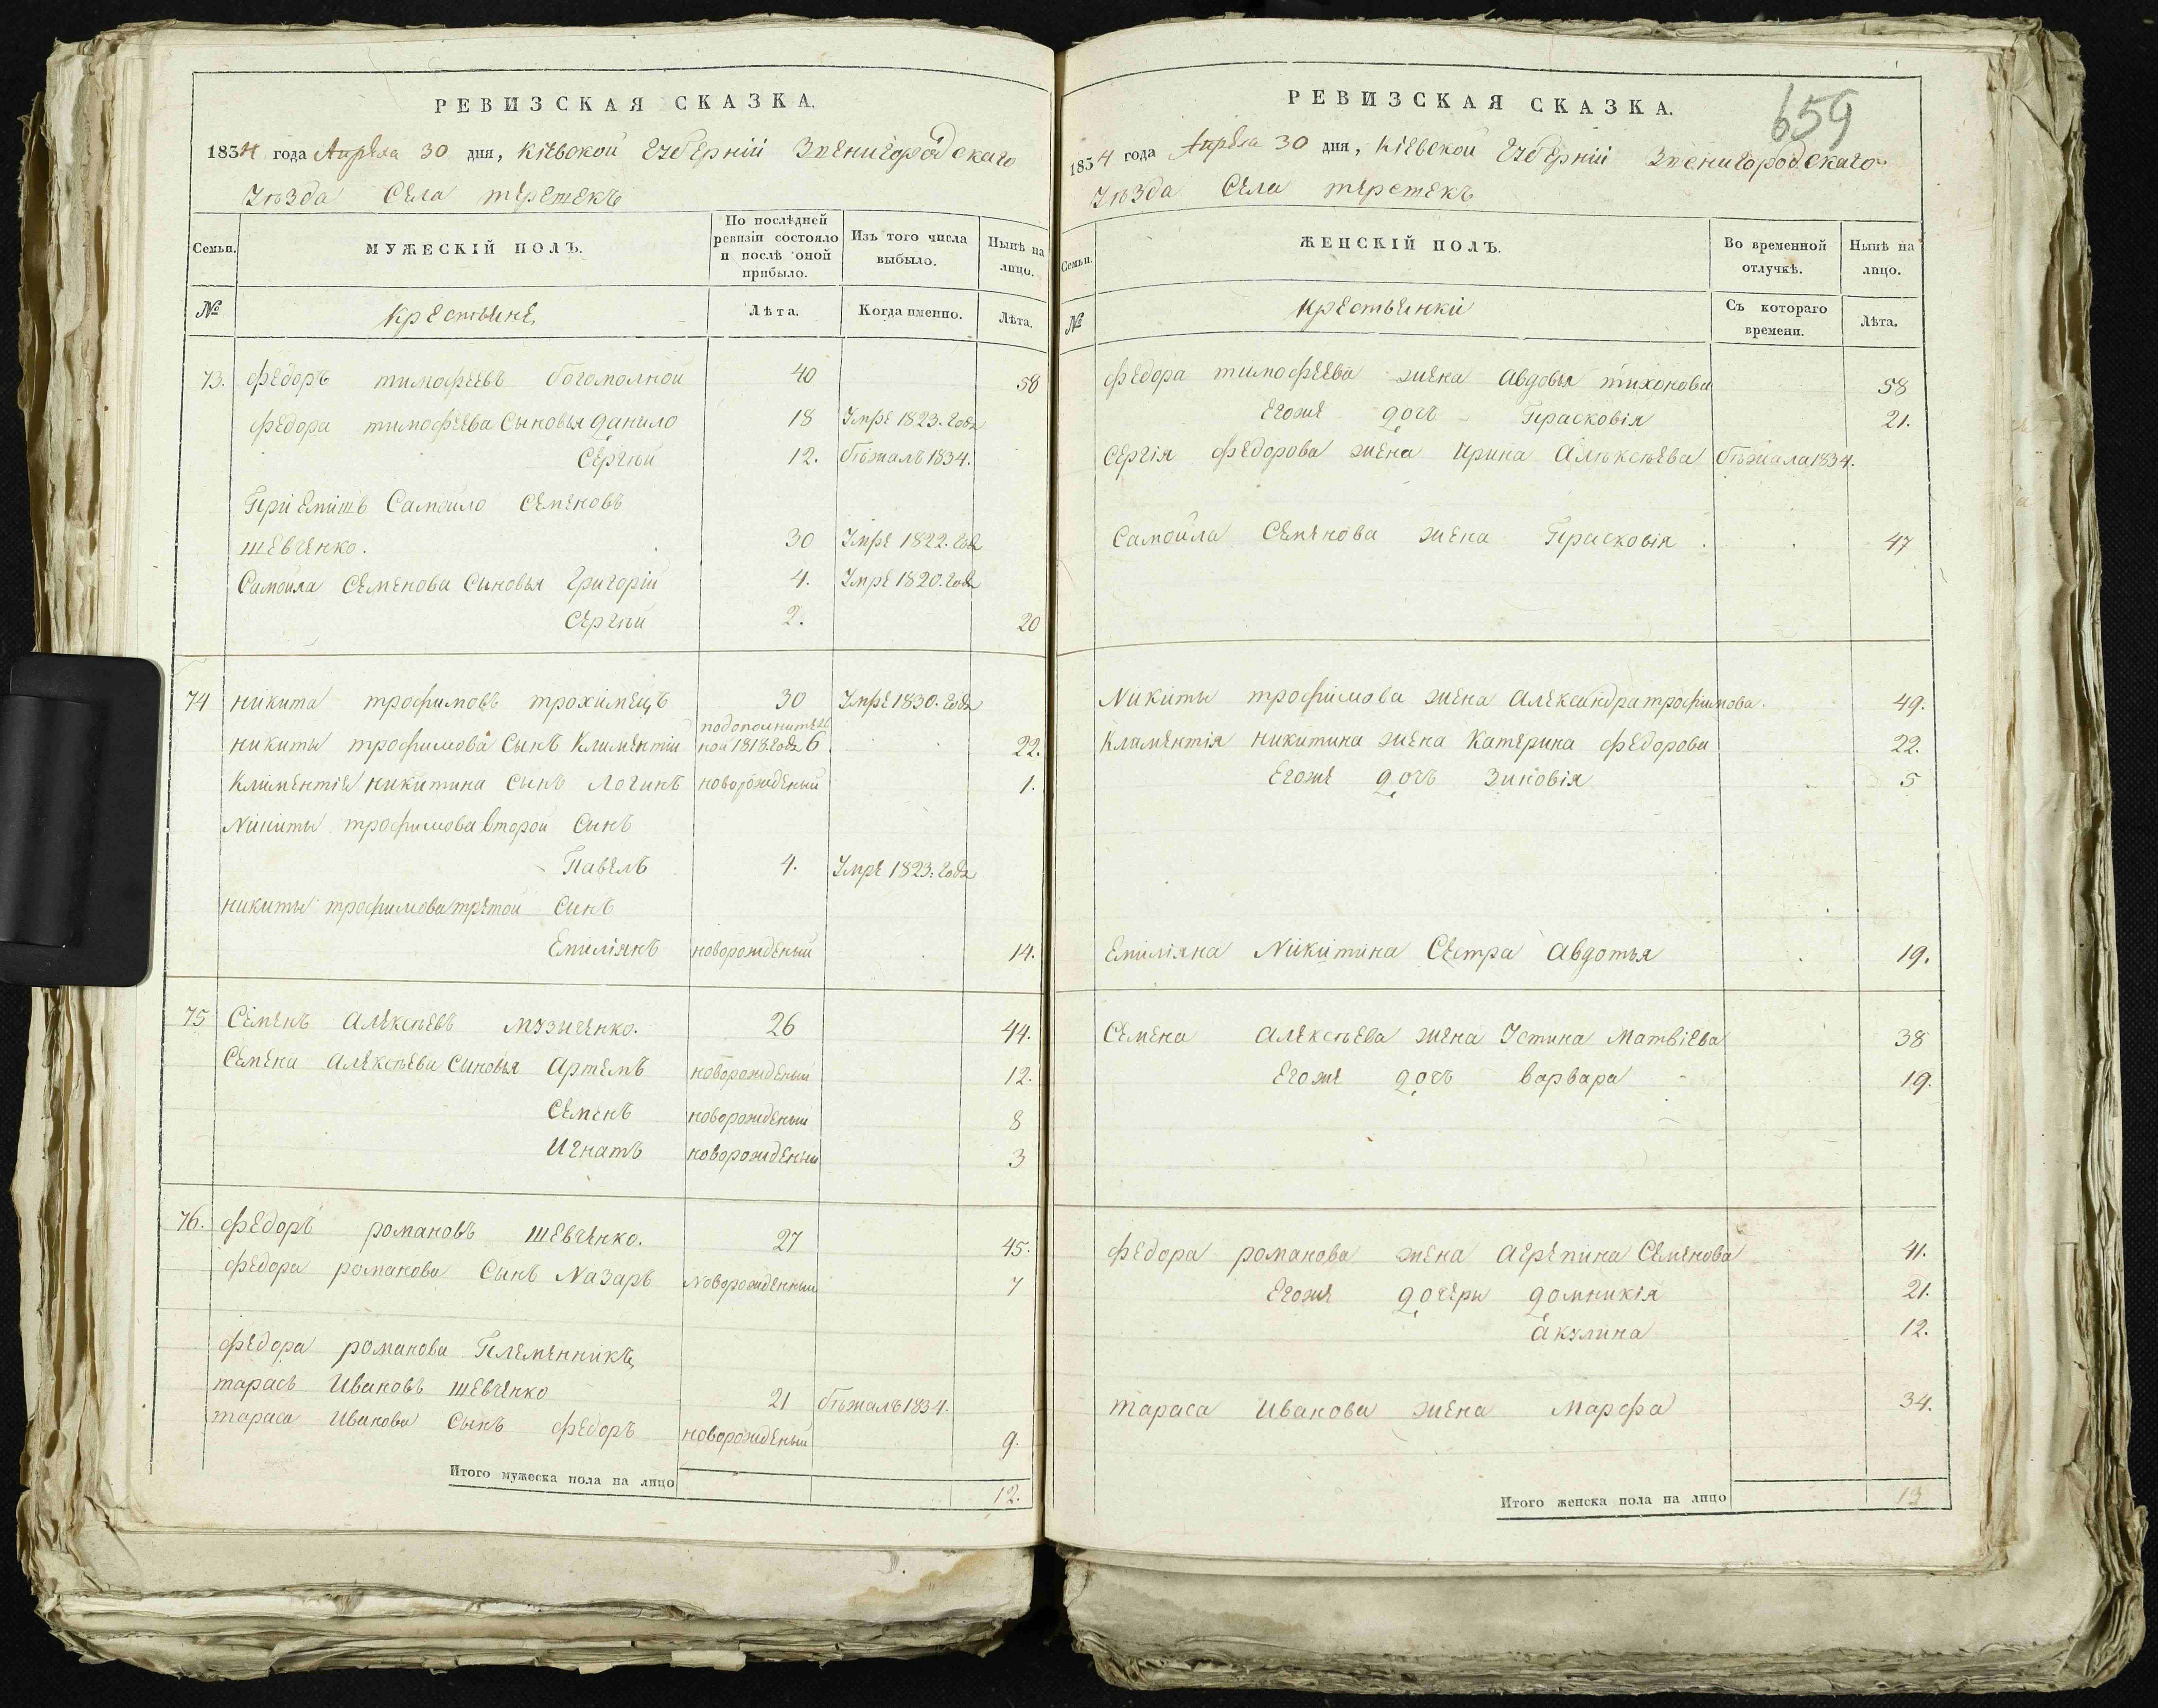 РЕВИЗСКАЯ СКАЗКА.
1834 года Апреля 30 дня, Кіевской Губерніи Звенигородскаго
Уѣзда Села терешекъ
Семьи.
МУЖЕСКІЙ ПОЛЪ.
По послѣдней ревизіи состояло и послѣ оной прибыло.
Изъ того числа выбыло.
Нынѣ на лицо.
№
Крестьяне
Лѣта.
Когда именно.
Лѣта.
73. федоръ тимофеевъ богомолной 40 58
федора тимофеева Сыновья данило 18 Умре 1823. года
Сергѣй 12. бѣжалъ 1834.
Пріемишъ Самойло Семеновъ
шевченко. 30 Умре 1822. года
Самойла Семенова Сыновья Григорій 4. Умре 1820. года
Сергѣй 2. 20
74 никита трофимовъ трохимецъ 30 Умре 1830. года
никиты трофимова Сынъ Климентій подополнителной 1818 года 6 22.
Климентія никитина Сынъ Логинъ новорожденый 1.
Никиты трофимова второй Сынъ
Павелъ 4. Умре 1823. года
никиты трофимова третой Сынъ
Емиліянъ новорожденый 14.
75 Семенъ Алексѣевъ музиченко. 26 44.
Семена Алексѣева Сыновья Артемъ новорожденый 12.
Семенъ новорожденый 8
Игнатъ новорожденый 3
76. федоръ романовъ шевченко. 27 45.
федора романова Сынъ Назаръ Новорожденный 7
федора романова Племенникъ
тарасъ Ивановъ шевченко 21 бѣжалъ 1834.
тараса Иванова Сынъ федоръ новорожденый 9.
Итого мужеска пола на лицо 12.
659
РЕВИЗСКАЯ СКАЗКА.
1834 года Апреля 30 дня, Кіевской Губерніи Звенигородскаго
Уѣзда Села терешекъ
Семьи.
ЖЕНСКІЙ ПОЛЪ.
Во временной отлучкѣ.
Нынѣ на лицо.
№
Крестьянки
Съ котораго времени.
Лѣта.
федора тимофеева жена Авдотья тихонова 58
Егоже дочъ Парасковія 21.
Сергія федорова жена Ирина Алексѣева бѣжала 1834.
Самойла Семенова жена Парасковія 47
Никиты трофимова жена Александра трофимова. 49.
Климентія никитина жена Катерина федорова 22.
Егоже дочъ Зиновія 5
Емиліяна Никитина Сестра Авдотья 19.
Семена Алексѣева жена Устина Матвіева 38
Егоже дочъ варвара 19.
федора романова жена Агрепина Семенова 41.
Егоже дочери домникія 21.
акулина 12.
тараса Иванова жена Марфа 34.
Итого женска пола на лицо 13